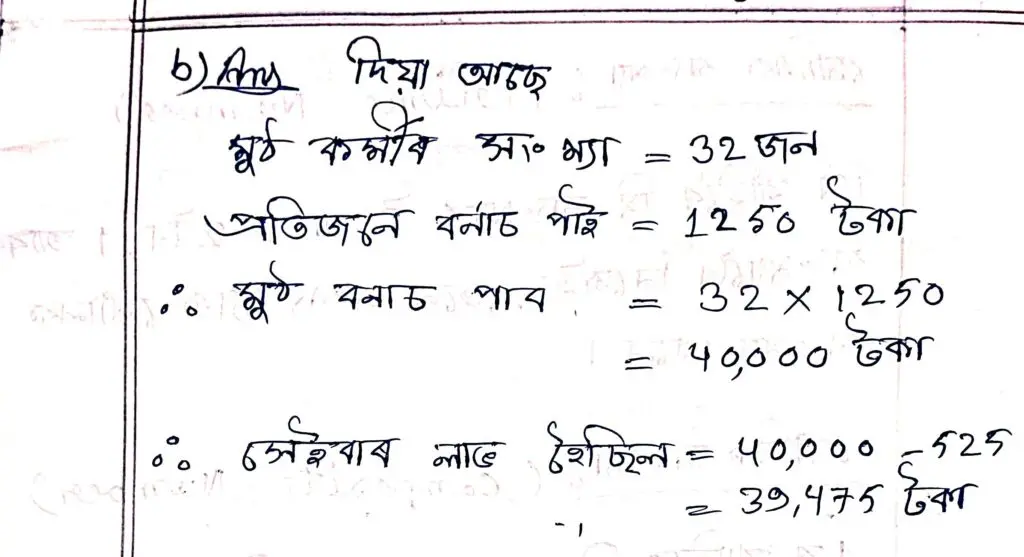 b) Ans দিয়া আছে
মুঠ কৰ্মীৰ সংখ্যা = 32 জন
প্ৰতিজনে বনাচ পাই = 1250 টকা
∴ মুঠ বনাচ পাব = 32 × 1250
= 40,000 টকা
∴ সেইবাৰ লাভ হৈছিল = 40,000 - 525
= 39,475 টকা